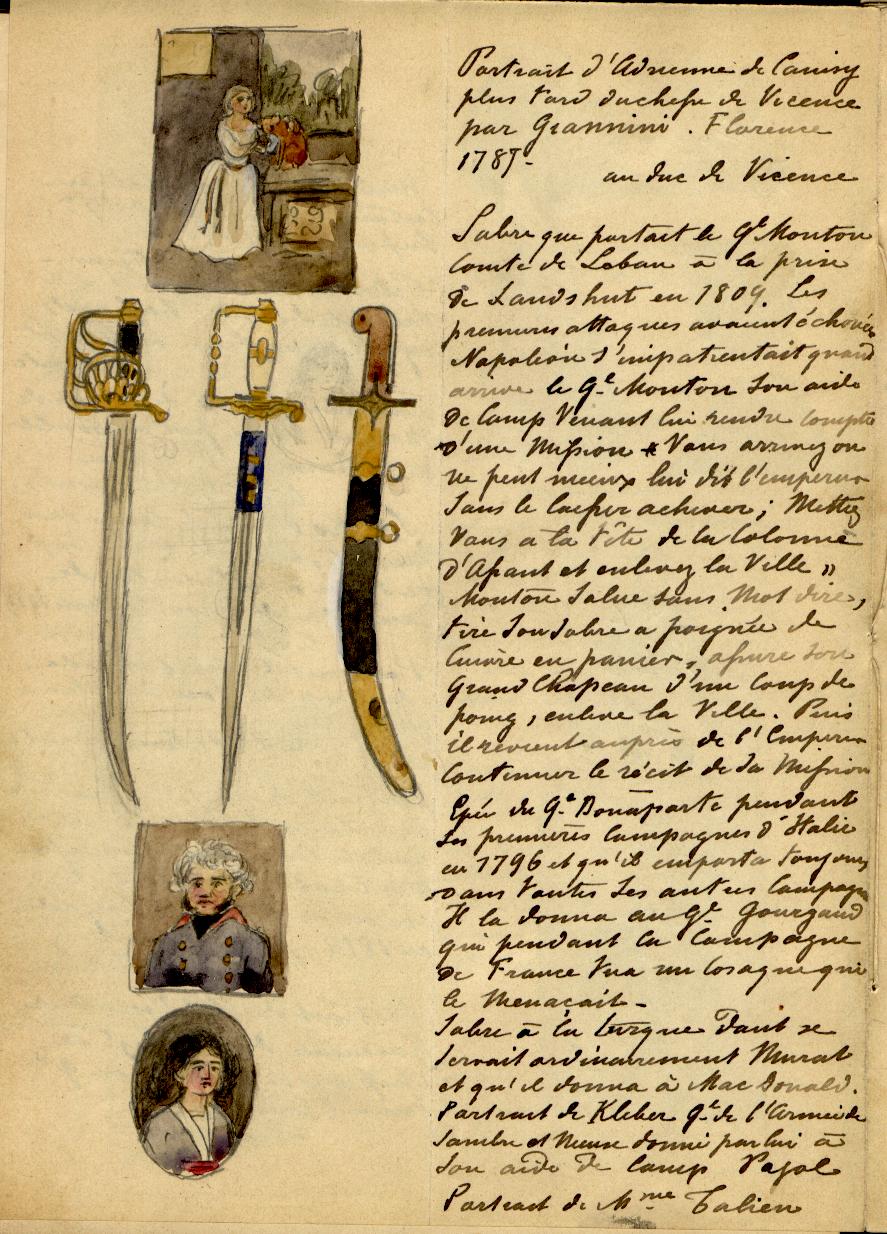 Portrait d'Adrienne de Canisy
plus tard duchesse de Vicence
par Giannini. Florence
1787-
au duc de Vicence
Sabre que portait le Gal Mouton
Comte de Lobau à la prise
de Landshut en 1809. Les
premieres attaques avaient échouées
Napoléon s'impatientait quand
arrive le Gal Mouton son aide
de Camp Venant lui rendre compte
d'une Mission « Vous arrivez on
ne peut mieux lui dit l'empereur
sans le laisser achever; Mettez
Vous a la tête de la Colonne
d'Assaut et enlevez la Ville »
Mouton salue sans mot dire,
tire son sabre a poignée de
Cuivre en panier, assure son
Grand Chapeau d'un coup de
poing, enleve la Ville. Puis
il revient auprès de l'Empereur
Continuer le récit de sa Mission
Epée du Gal Bonaparte pendant
ses premières Campagnes d'Italie
en 1796 et qu'il emporta toujours
dans toutes ses autres Campagnes
Il la donna au Gal Gourgaud
qui pendant la Campagne
de France tua un Cosaque qui
le Menaçait -
Sabre à la turque dont se
servait ordinairement Murat
et qu'il donna à Mac Donald.
Portrait de Kleber Gal de l'Armée de
Sambre et Meuse donné par lui à
son aide de Camp Pajol
Portrait de Mme Talien